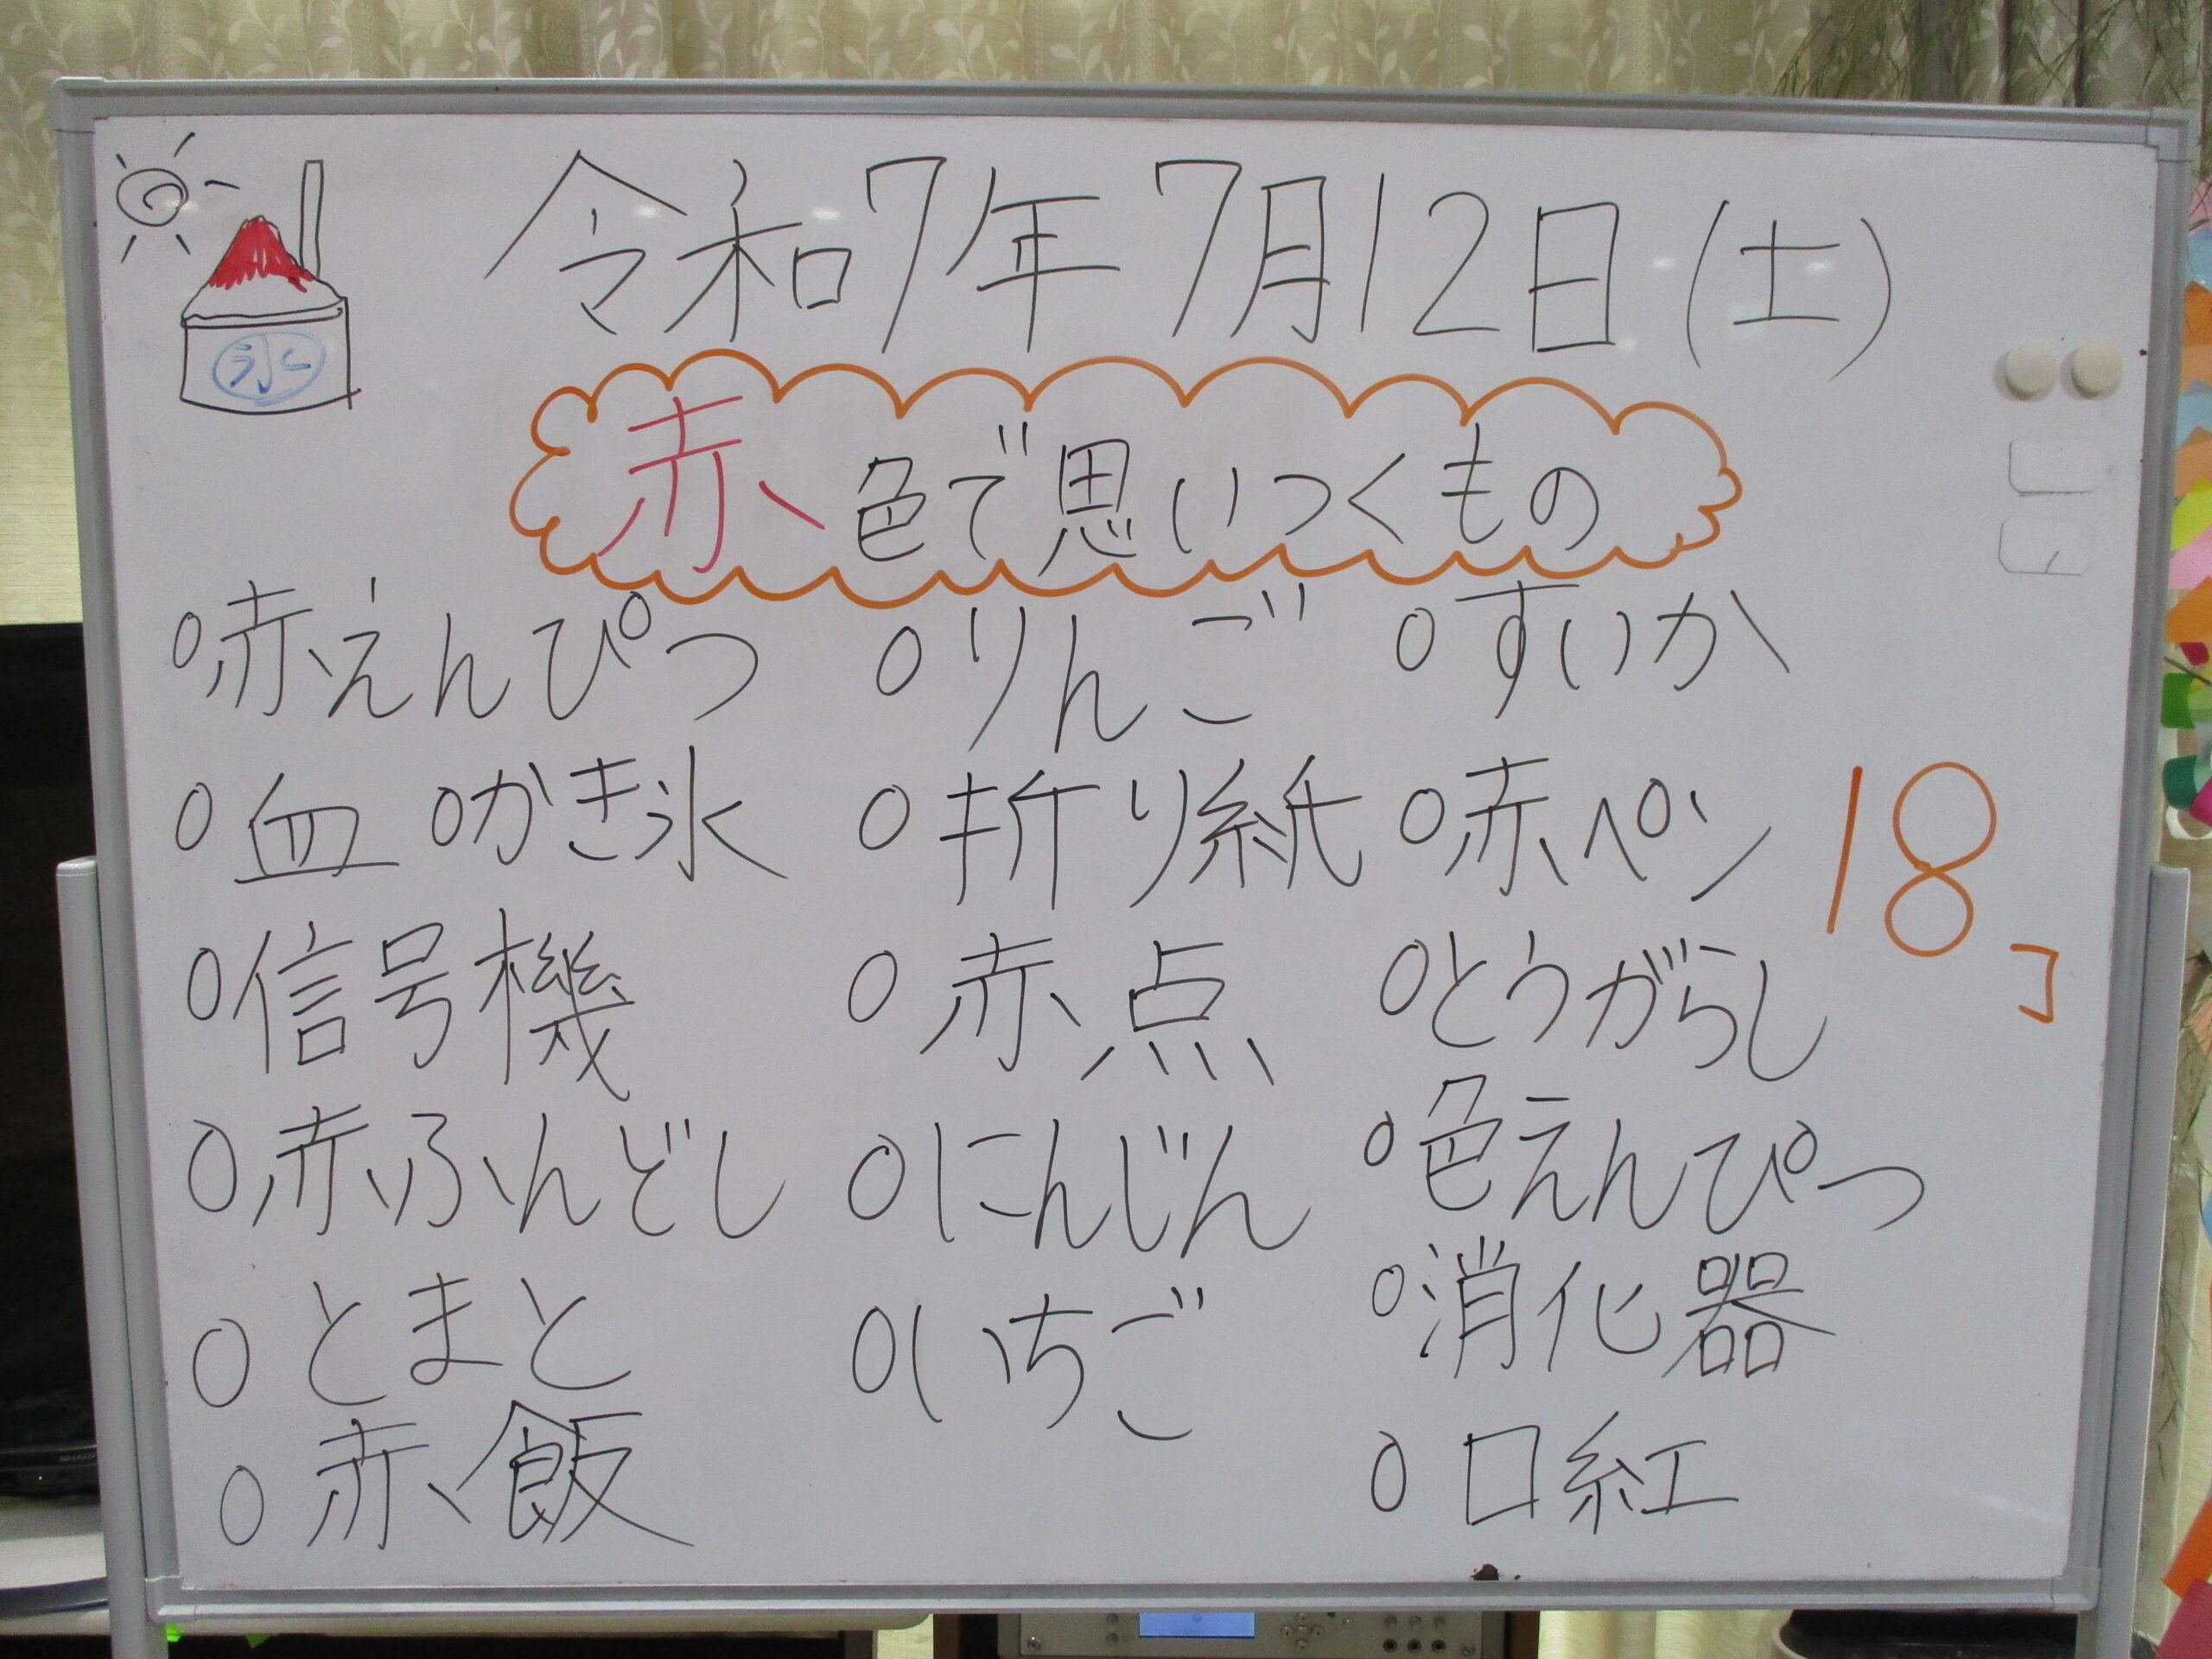 令和7年7月12日(土)
氷
赤色で思いつくもの
○赤えんぴつ ○りんご ○すいか
○血 ○かき氷 ○折り紙 ○赤ペン
18コ
○信号機 ○赤点 ○とうがらし
○赤ふんどし ○にんじん ○色えんぴつ
○とまと ○いちご ○消化器
○赤飯 ○口紅